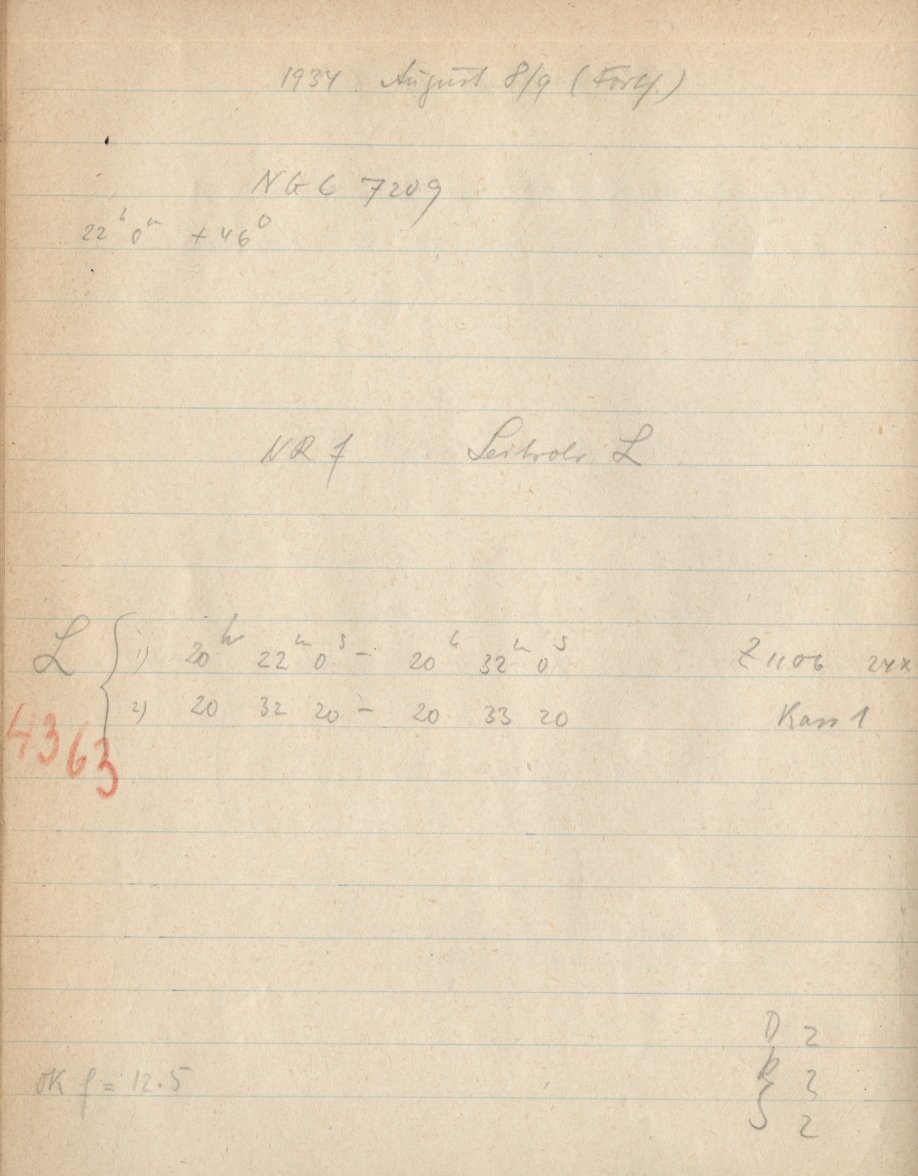 1934 August 8/9 (Forts.)
NGC 7209
22ʰ 0ᵐ +46⁰
NR f Leitrohr L
L 1) 20ʰ 22ᵐ 0ˢ – 20ʰ 32ᵐ 0ˢ Z 1106 24x
2) 20 32 20 – 20 33 20 Kass 1
4363
D 2
R 2
OK f = 12.5
S 2